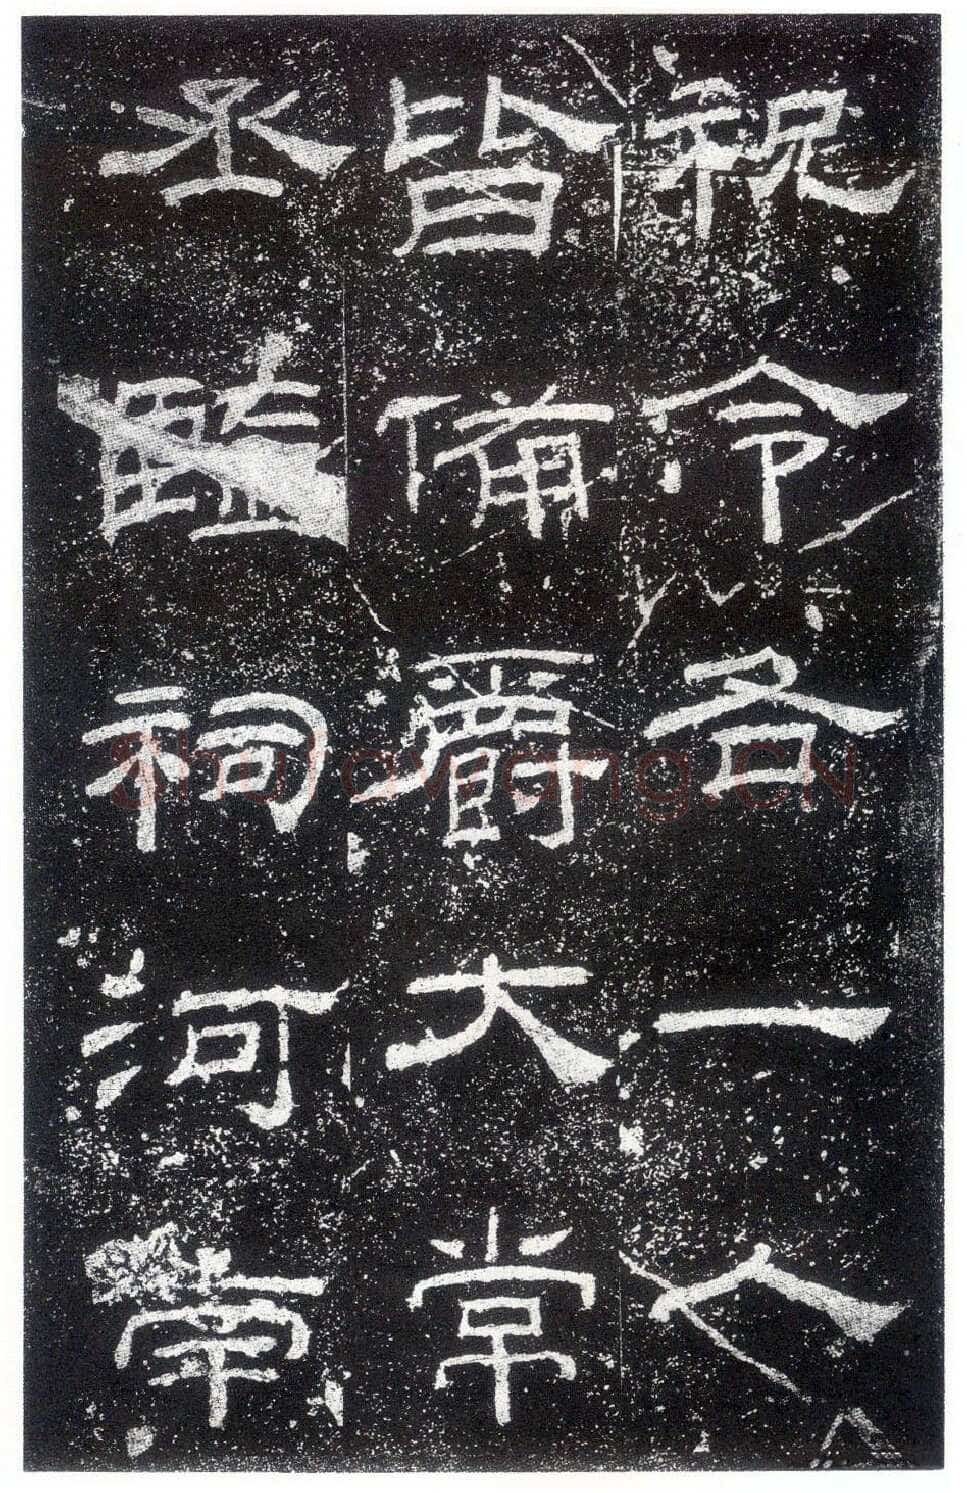 祝令各一人
皆備爵大常
丞監祠河南
Shufawang.CN